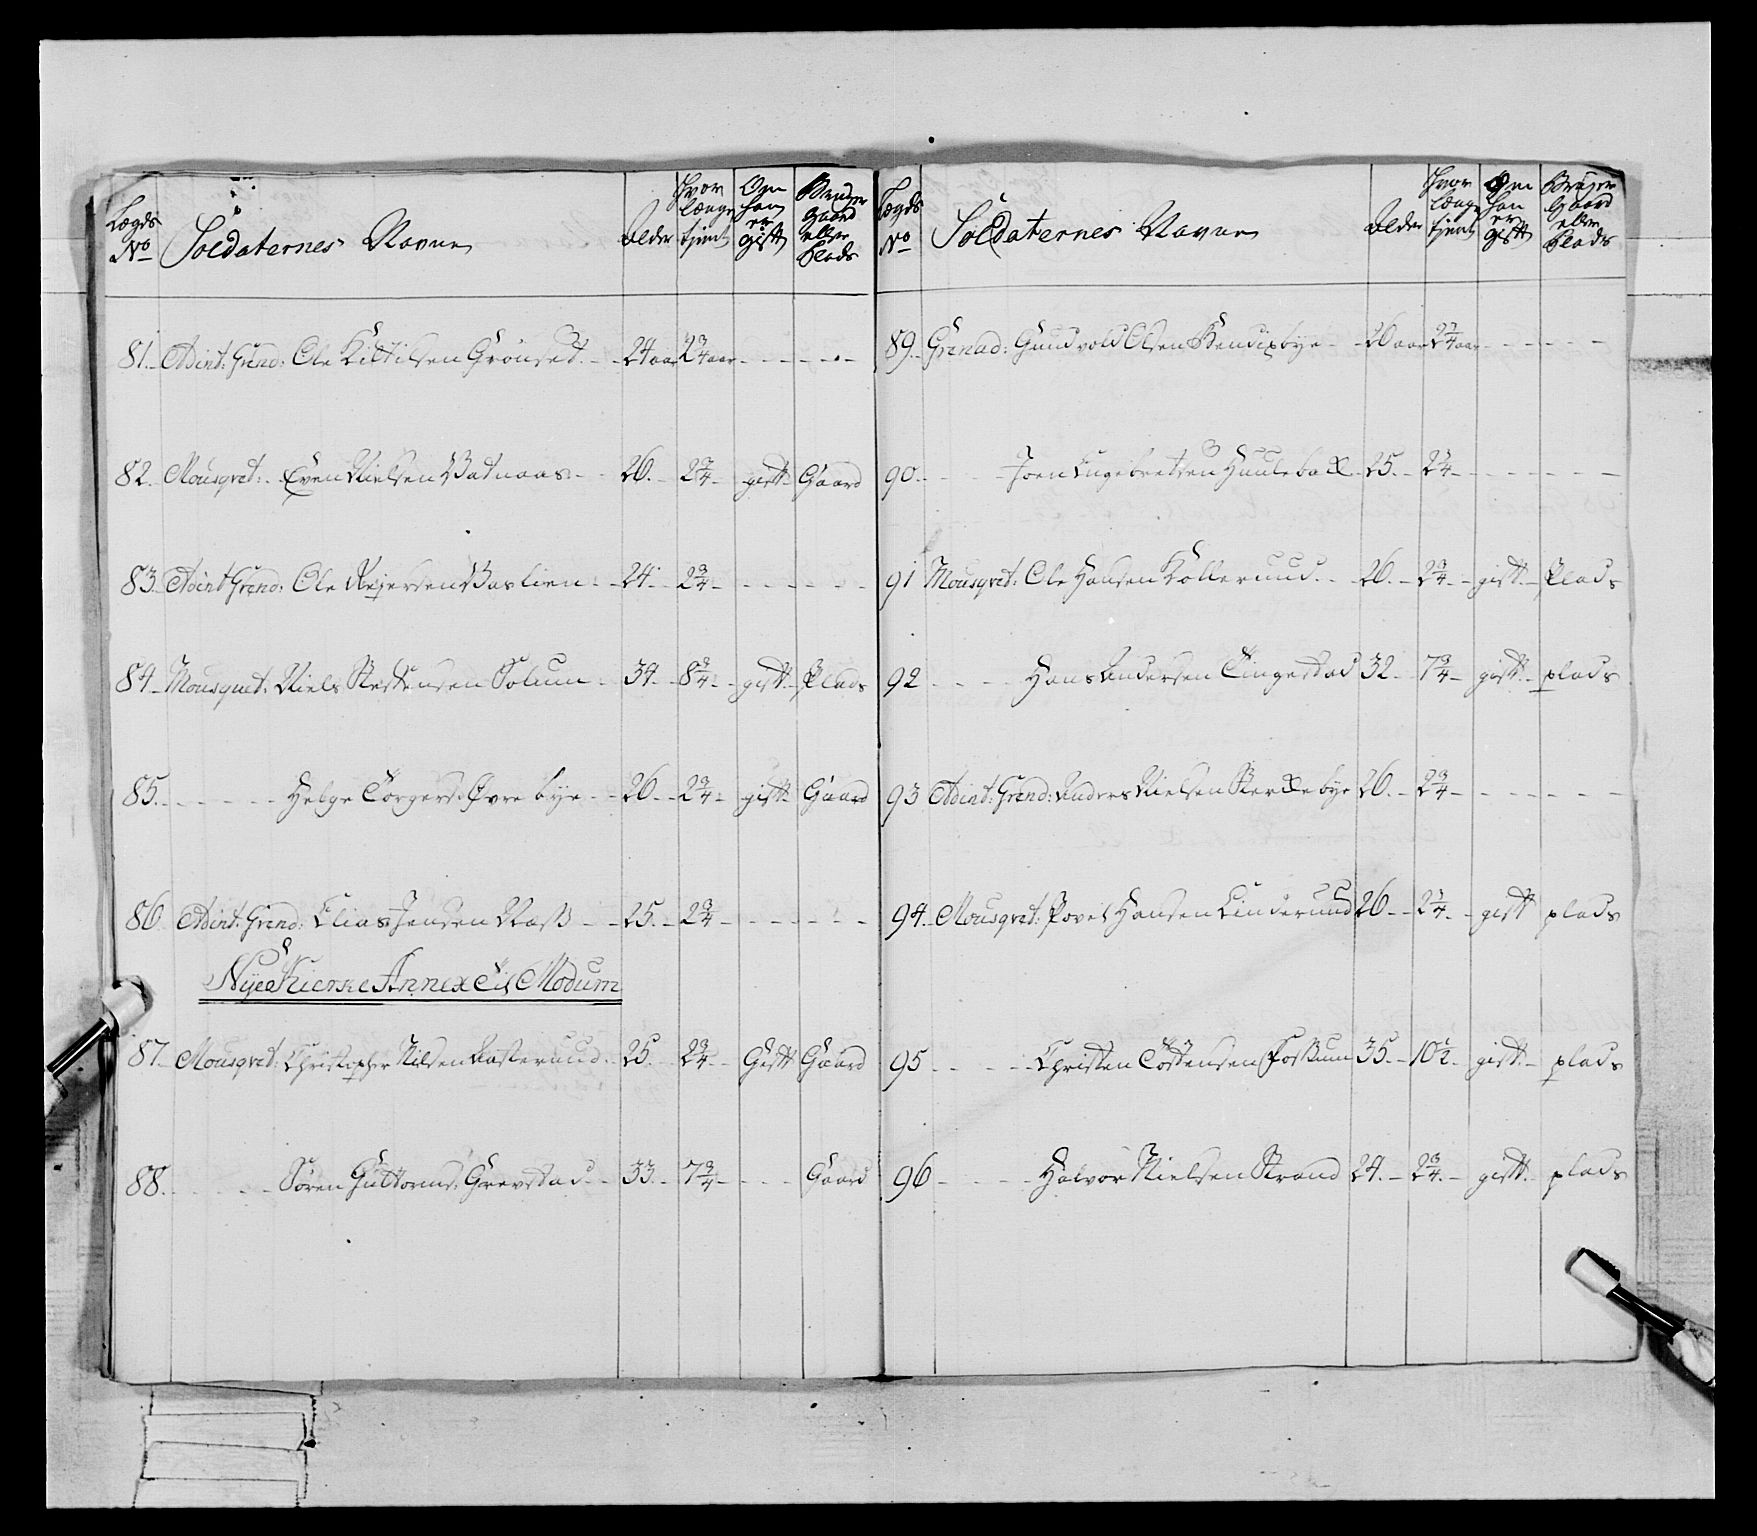 Lægds No Soldaternes Navne Alder Hvor længe tjent Om han er gift Bruger gaard eller Plads
81. Adint: Grend: Ole Kittilsen Grönset 24 aar 2 3/4 aar
82. Mousqvet: Even Nielsen Vatnaas 26. 2 3/4 gift Gaard
83. Adint Grend: Ole Rejersen Baslien 24. 2 3/4
84. Mousquet: Niels Stensen Solum 34. 8 3/4 gift Plads
85. Helge Torgers: Øvre bye 26. 2 3/4 gift Gaard
86 Adint: Grend: Elias Jensen Naß 25. 2 3/4
Nÿe Kierke Annex til Modum
87. Mousqvet: Christopher Nilsen Aaserud 25. 2 3/4 Gift Gaard
88. Sören Guttorms: Grevstad 33. 7 3/4 Gaard
Lægds No Soldaternes Navne Alder Hvor længe tjent Om han er gift Bruger Gaard eller Plads
89. Grenad: Gundvold Olsen Bendixbye 26 aar 2 3/4 aar
90. Joen Engebretsen Haulebak 25. 2 3/4
91 Mousqvet: Ole Hansen Kollerud 26. 2 3/4 gift Plads
92 Hans Andersen Tingestad 32 7 3/4 gift plads
93 Adint: Grend: Anders Nielsen Sterkebye 26. 2 3/4
94. Mousqvet: Povel Hansen Linderud 26 2 3/4 gift plads
95 Christen Tostensen Foßum 35. 10 1/2 gift plads
96 Halvor Nielsen Strand 24. 2 3/4 gift plads